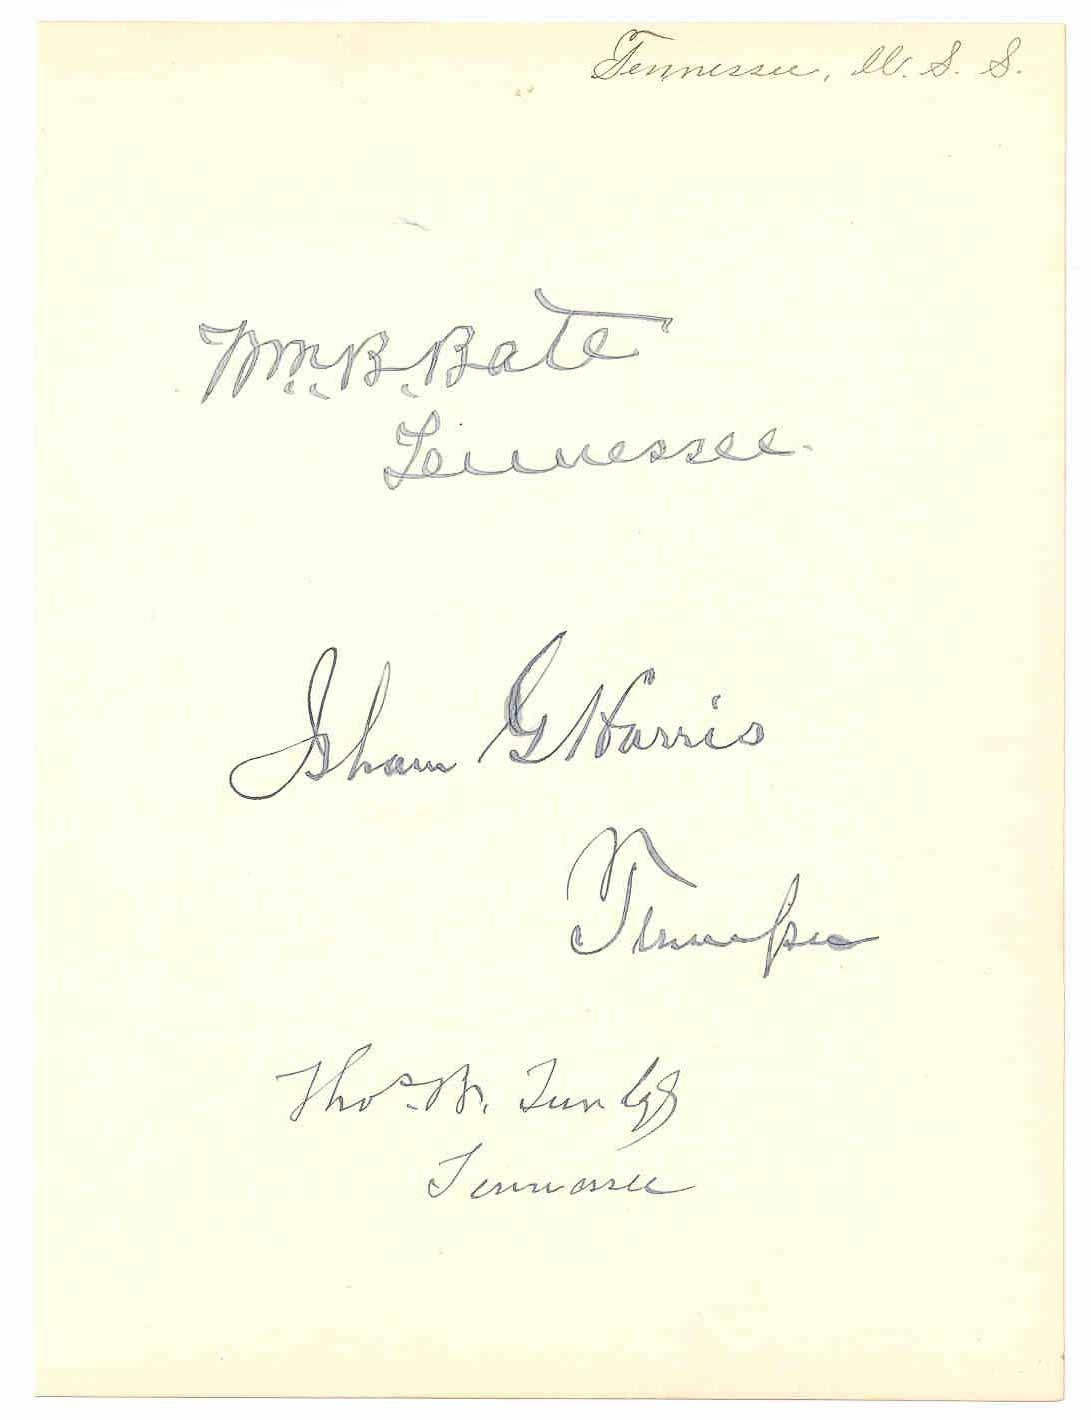 Tennessee, U. S. S.
Wm. B. Bate
Tennessee.
Isham G Harris
Tennessee
Thos. B. Turley
Tennessee